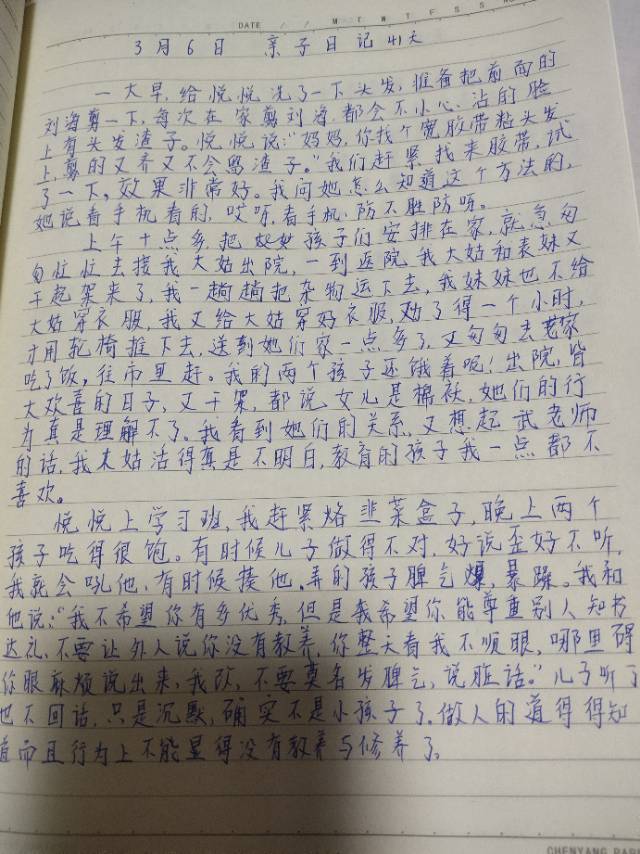 DATE / /
M T W T F S S
3月6日 亲子日记41天
一大早,给悦悦洗了一下头发,准备把前面的
刘海剪一下,每次在家剪刘海,都会不小心沾的脸
上有头发渣子。悦悦说:“妈妈,你找个宽胶带粘头发
上,剪的又齐又不会留渣子。”我们赶紧找来胶带,试
了一下,效果非常好。我问她怎么知道这个方法的,
她说看手机看的,哎呀,看手机,防不胜防呀。
上午十点多,把孩子们安排在家,就急匆
匆忙忙去接我大姑出院,一到医院,我大姑和表妹又
干起架来了,我一趟趟把杂物运下去,我妹妹也不给
大姑穿衣服,我又给大姑穿好衣服,劝了得一个小时,
才用轮椅推下去,送到她们家一点多了,又匆匆去老家
吃了饭,往市里赶。我的两个孩子还饿着呢!出院,皆
大欢喜的日子,又干架,都说女儿是棉袄,她们的行
为真是理解不了。我看到她们的关系,又想起武老师
的话,我大姑活得真是不明白,教育的孩子我一点都不
喜欢。
悦悦上学习班,我赶紧烙韭菜盒子,晚上两个
孩子吃得很饱。有时候儿子做得不对,好说歪好不听,
我就会吼他,有时候揍他,弄的孩子脾气爆,暴躁。我和
他说:“我不希望你有多优秀,但是我希望你能尊重别人知书
达礼,不要让外人说你没有教养,你整天看我不顺眼,哪里碍
你眼麻烦说出来,我改,不要莫名发脾气,说脏话。”儿子听了
也不回话,只是沉默,确实不是小孩子了。做人的道得得知
道而且行为上不能显得没有教养与修养了。